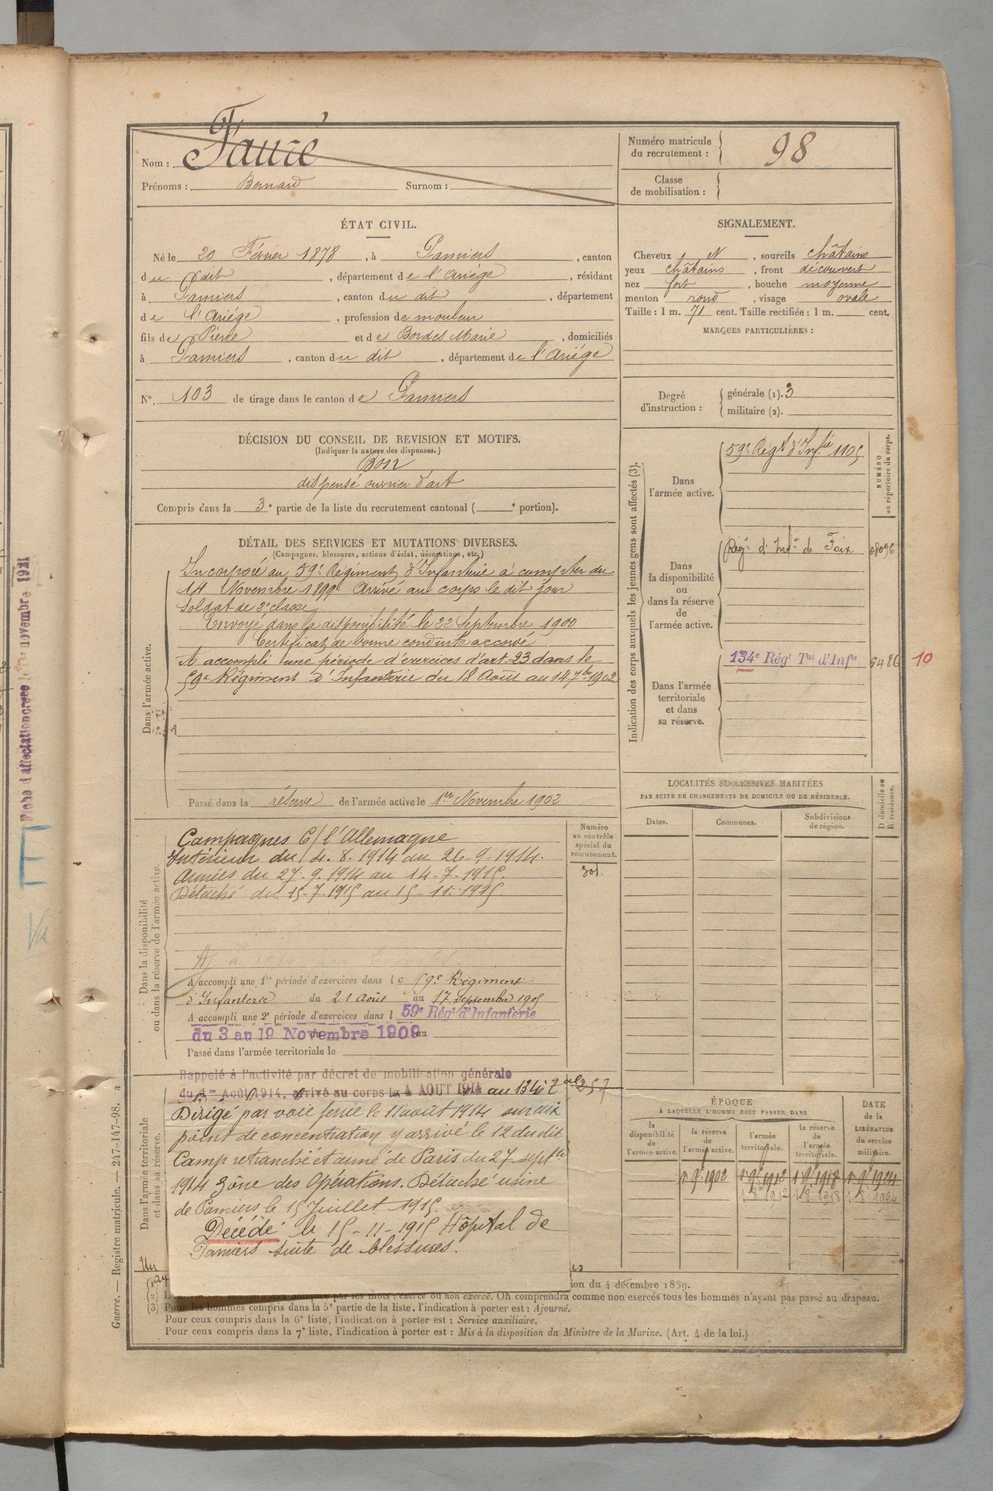 Nom : Fauré
Prénoms : Bernard Surnom :
Numéro matricule du recrutement : 98
Classe de mobilisation :
ÉTAT CIVIL.
Né le 20 Février 1878, à Pamiers, canton
du dit, département de l'Ariége, résidant
à Pamiers, canton du dit, département
de l'Ariége, profession de mouleur
fils de Pierre et de Bordes Marie, domiciliés
à Pamiers, canton du dit, département de l'Ariége
N° 103 de tirage dans le canton de Pamiers
SIGNALEMENT.
Cheveux N, sourcils châtains
yeux châtains, front découvert
nez fort, bouche moyenne
menton rond, visage ovale
Taille : 1 m. 71 cent. Taille rectifiée : 1 m. cent.
MARQUES PARTICULIÈRES :
Degré d'instruction : générale (1). 3
militaire (2).
DÉCISION DU CONSEIL DE REVISION ET MOTIFS.
(Indiquer la nature des dispenses.)
Bon
dispensé ouvrier d'art
Compris dans la 3e partie de la liste du recrutement cantonal ( e portion).
DÉTAIL DES SERVICES ET MUTATIONS DIVERSES.
(Campagnes, blessures, actions d'éclat, décorations, etc.)
Dans l'armée active.
Incorporé au 59e Régiment d'Infanterie à compter du
14 Novembre 1899. Arrivé au corps le dit jour
Soldat de 2e classe
Envoyé dans la disponibilité le 22 Septembre 1900
Certificat de bonne conduite accordé
A accompli une période d'exercices d'art. 23 dans le
59e Régiment d'Infanterie du 18 Août au 14 7bre 1902
Passé dans la réserve de l'armée active le 1er Novembre 1902
Dans la disponibilité ou dans la réserve de l'armée active.
Campagnes C/ l'Allemagne
Intérieur du 4. 8. 1914 au 26-9-1914.
Armées du 27. 9. 1914 au 14-7-1915.
Détaché du 15-7-1915 au 15-11-1915
A accompli une 1re période d'exercices dans le 59e Régiment
d'Infanterie du 21 Août au 17 Septembre 1905
A accompli une 2e période d'exercices dans l 59e Régt d'Infanterie
du 3 au 19 Novembre 1909
Passé dans l'armée territoriale le
Numéro au contrôle spécial du recrutement.
301.
Dans l'armée territoriale et dans sa réserve.
Rappelé à l'activité par décret de mobilisation générale
du 1er Août 1914, arrivé au corps le 4 AOUT 1914 au 134e
257
Dirigé par voie ferrée le 11 août 1914 sur
point de concentration y arrivé le 12 du dit
Camp retranché et armé de Paris du 27 septbre
1914 Zône des Opérations. Détaché usine
de Pamiers le 15 Juillet 1915.
Décédé le 15-11-1915 Hôpital de
Pamiers suite de blessures.
Indication des corps auxquels les jeunes gens sont affectés (3).
NUMÉRO au répertoire du corps.
Dans l'armée active.
59e Régt d'Infrie 1105
Dans la disponibilité ou dans la réserve de l'armée active.
Régt d'Infrie de Foix
Dans l'armée territoriale et dans sa réserve.
134e Régt Tal d'Infie 5486 10
LOCALITÉS SUCCESSIVES HABITÉES
PAR SUITE DE CHANGEMENTS DE DOMICILE OU DE RÉSIDENCE.
Dates. Communes. Subdivisions de région. D domicile ou R résidence.
ÉPOQUE
À LAQUELLE L'HOMME DOIT PASSER DANS
la disponibilité de l'armée active.
la réserve de l'armée active.
l'armée territoriale.
la réserve de l'armée territoriale.
DATE de la LIBÉRATION du service militaire.
ion du 4 décembre 1889.
On comprendra comme non exercés tous les hommes n'ayant pas passé au drapeau.
(3) Pour les hommes compris dans la 5e partie de la liste, l'indication à porter est : Ajourné.
Pour ceux compris dans la 6e liste, l'indication à porter est : Service auxiliaire.
Pour ceux compris dans la 7e liste, l'indication à porter est : Mis à la disposition du Ministre de la Marine. (Art. 4 de la loi.)
Guerre. — Registre matricule. — 247-147-98.